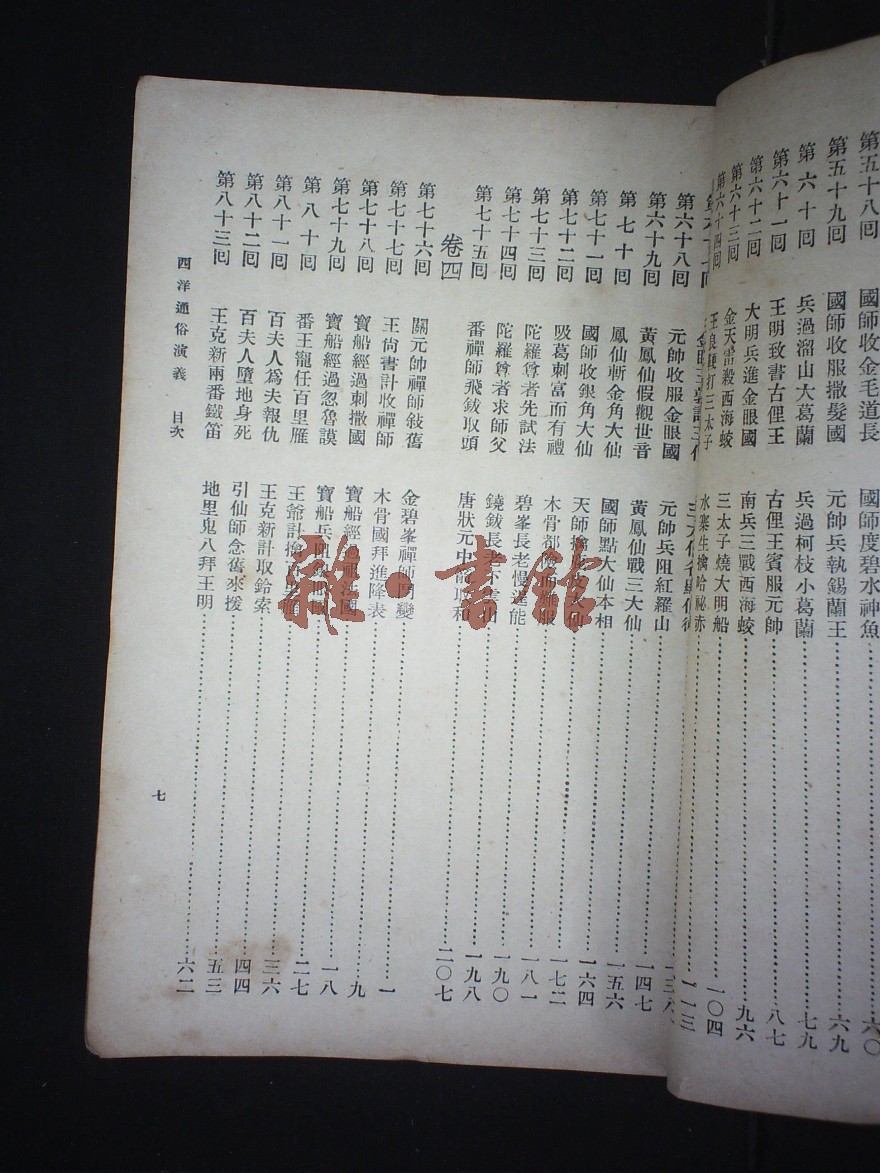 第五十八回 國師收金毛道長 國師度碧水神魚 六〇
第五十九回 國師收服撒髮國 元帥兵執錫蘭王 六九
第六十回 兵過溜山大葛蘭 兵過柯枝小葛蘭 七九
第六十一回 王明致書古俚王 古俚王賓服元帥 八七
第六十二回 大明兵進金眼國 南兵三戰西海蛟 九六
第六十三回 金天雷殺西海蛟 三太子燒大明船 一〇四
第六十四回 王良鞭打三太子 水寨生擒哈祕赤 一一三
第六十八回 元帥收服金眼國 元帥兵阻紅羅山
第六十九回 黃鳳仙假觀世音 黃鳳仙戰三大仙 一四七
第七十回 鳳仙斬金角大仙 國師點大仙本相 一五六
第七十一回 國師收銀角大仙 天師擒 大仙 一六四
第七十二回 吸葛剌富而有禮 木骨都 服 一七二
第七十三回 陀羅尊者先試法 碧峯長老慢逞能 一八一
第七十四回 陀羅尊者求師父 鐃鈸長老下 一九〇
第七十五回 番禪師飛鈸取頭 唐狀元中 和 一九八
二〇七
卷四
第七十六回 關元帥禪師敍舊 金碧峯禪師 變 一
第七十七回 王尚書計收禪師 木骨國拜進降表 九
第七十八回 寶船經過剌撒國 寶船經過 法國 一八
第七十九回 寶船經過忽魯謨 寶船兵阻 二七
第八十回 番王寵任百里雁 王爺計擒 三六
第八十一回 百夫人爲夫報仇 王克新計取鈴索 四四
第八十二回 百夫人墮地身死 引仙師念舊來援 五三
第八十三回 王克新兩番鐵笛 地里鬼八拜王明 六二
西洋通俗演義 目次
七
雜·書館